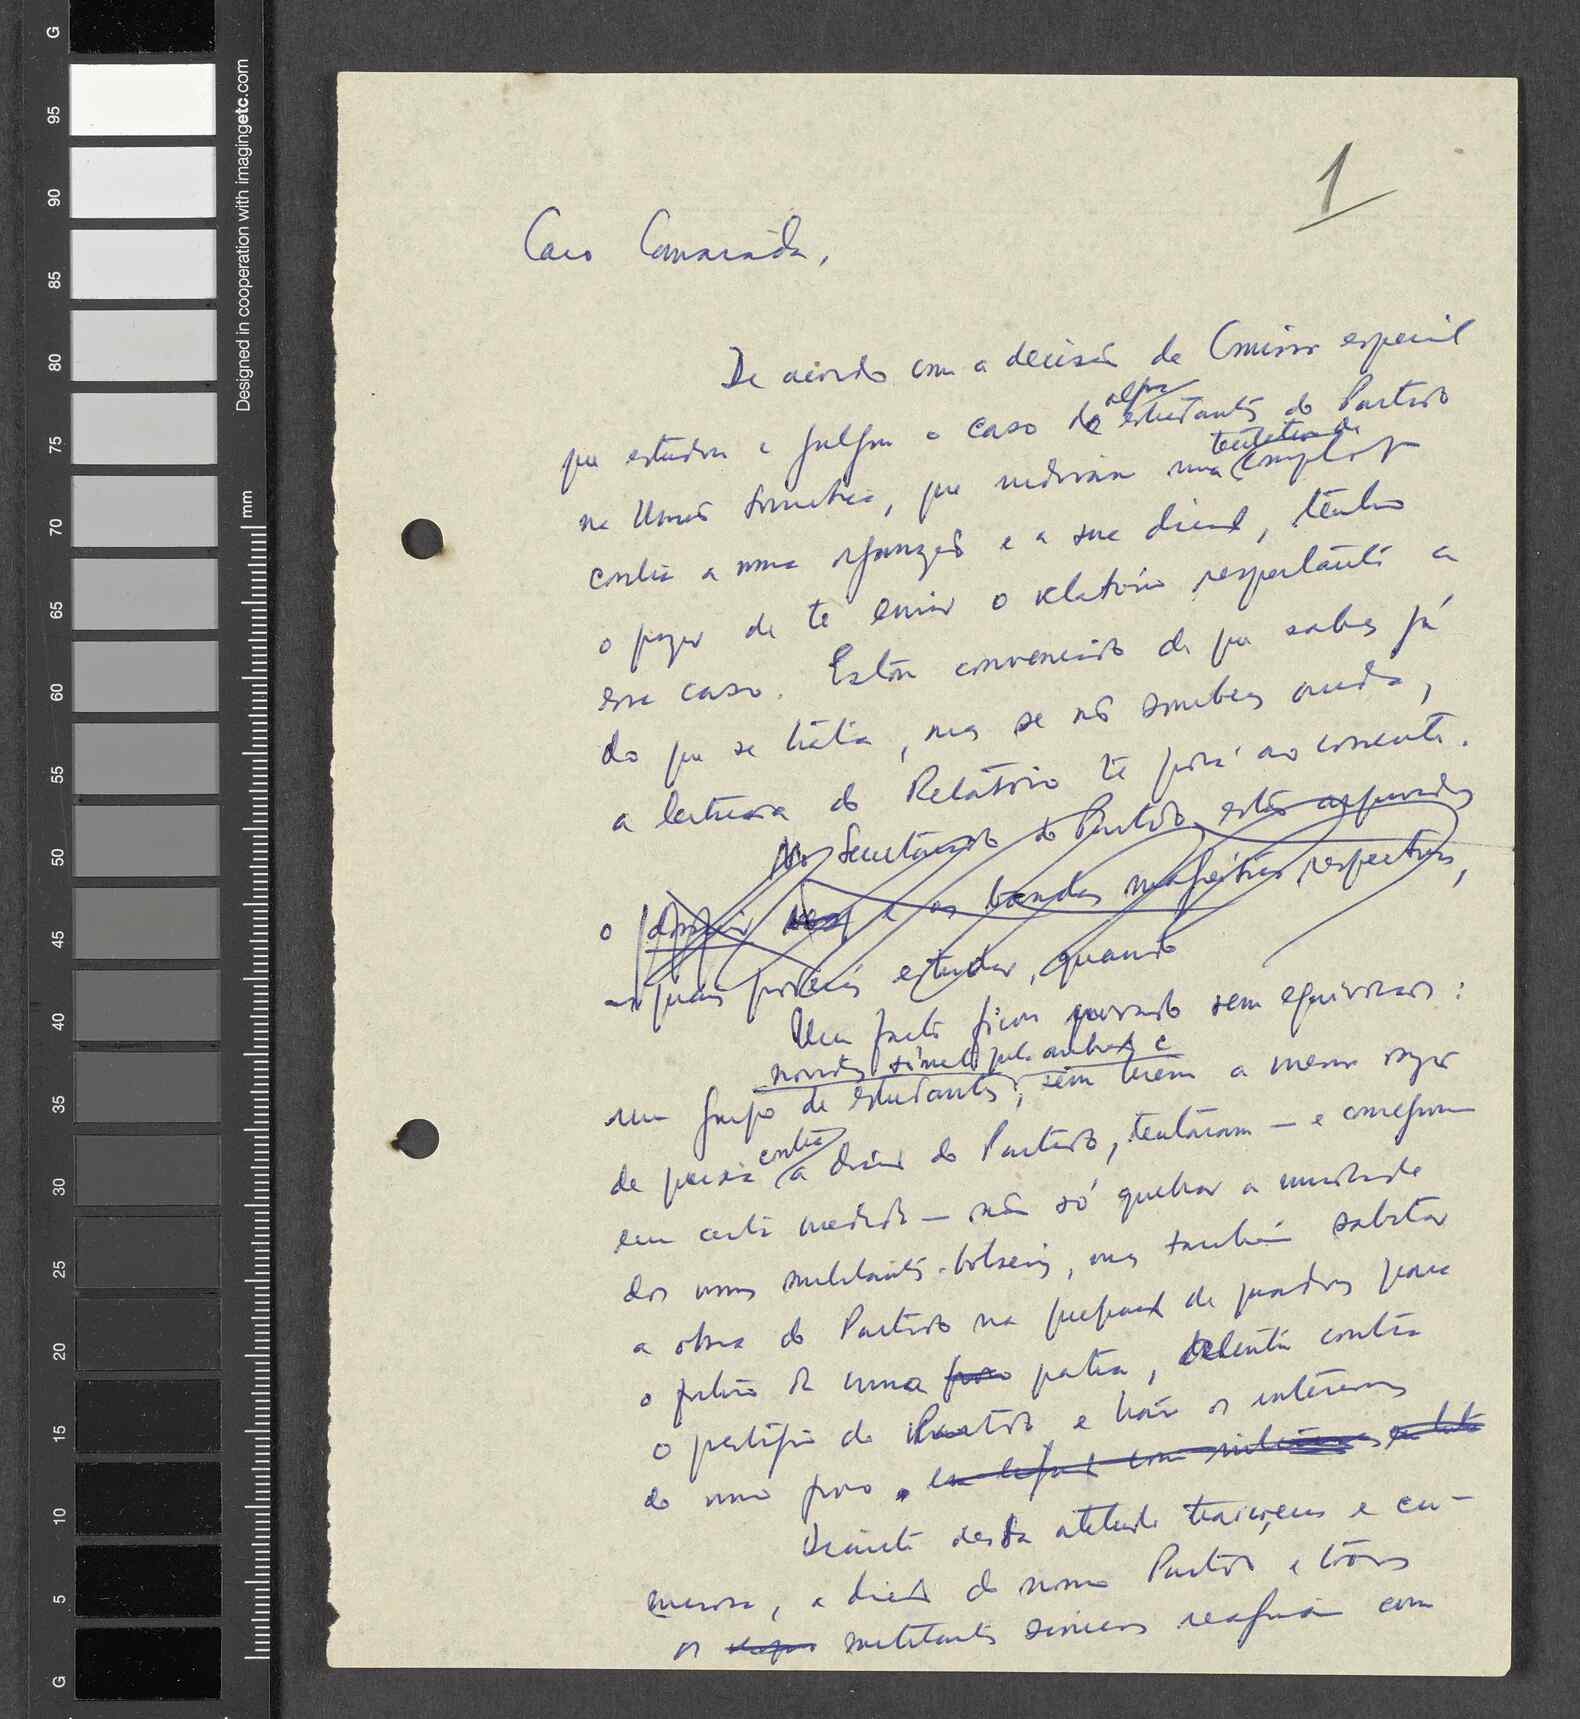 1
Caro Camarada,
De acordo com a decisão da Comissão especial
que estudou e julgou o caso de alguns estudantes do Partido
na União Soviética, que urdiram uma tentativa de complot
contra a nossa organização e a sua direcção, tenho
o prazer de te enviar o relatório respeitante a
esse caso. Estou convencido de que sabes já
do que se trata, mas se não souberes ainda,
a leitura do Relatório te porá ao corrente.
No Secretariado do Partido, estão arquivados
o dossier e as bandas magnéticas respectivas,
as quais poderás estudar, quando
Um facto ficou provado sem equívocos:
um grupo de estudantes, movidos pela ambição e sem terem a menor razão
de queixa contra a direcção do Partido, tentaram — e conseguiram
em certa medida — não só quebrar a unidade
dos nossos militantes-bolseiros, mas também sabotar
a obra do Partido na preparação de quadros para
o futuro da nossa pátria, atentar contra
o prestígio do Partido e trair os interesses
do nosso povo.
Diante desta atitude traiçoeira e cri-
minosa, a direcção do nosso Partido e todos
os militantes sinceros reagiram com
Designed in cooperation with imagingetc.com
mm
G
95
90
85
80
75
70
65
60
55
50
45
40
35
30
25
20
15
10
5
G